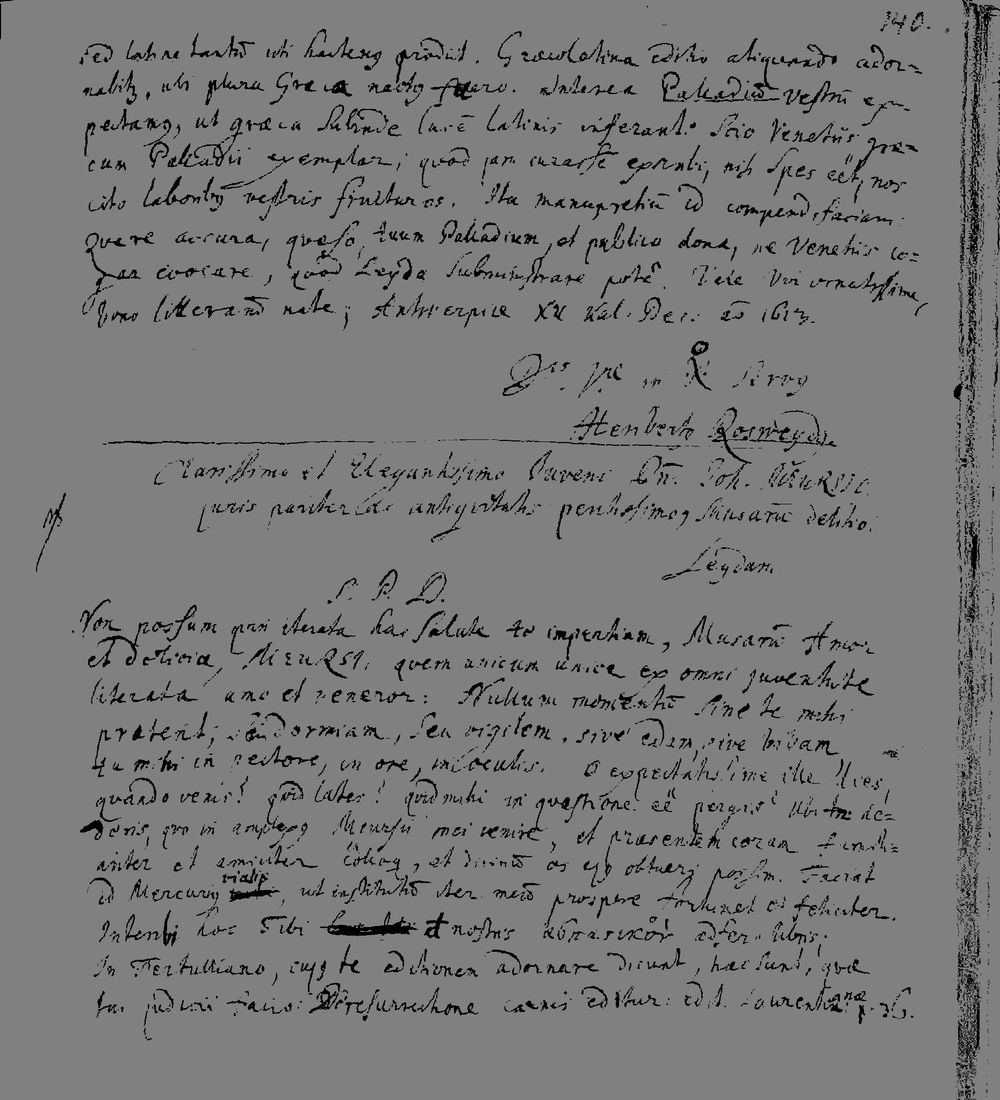 140.
sed latine tantũ uti hactenq prodiit. Græcolatina editio aliquando ador=
nabitq, ubi plura Græca nactq fuero. Interea Palladiũ vestrũ ex-
pectamq, ut græca subinde lucẽ latinis inferant. Scio Venetiis græ-
cum Palladii exemplar; quod jam curassẽ exscribi, nisi spes eẽt, nos
cito laboribq vestris fruituros. Ita manupretiũ id compendifaciam.
Quare accura, quæso, tuum Palladium, et publico dona, ne Venetiis co=
gar evocare, quod Leyda subministrare potẽ. Vale Vir ornatissime,
bono litterarũ nate; Antverpiæ XII Kal. Dec. aõ 1613.
in X. servq
Heribertq Rosweydq.
Clarissimo et Elegantissimo Juveni Dñ. Joh. MEURSIO.
juris pariter ac antiquitatis peritissimo, Musarũ delitio.
Leydam.
S. P. D.
Non possum quin iterata hac salute te impertiam, Musarũ Amor
et deliciæ, MEURSI, quem unicum unice ex omni juventute
literata amo et veneror: Nullum momentũ sine te mihi
præterit; seu dormiam, seu vigilem, sive edam, sive bibam
tu mihi in pectore, in ore, in oculis. O expectatissime ille dies,
quando venis? quid lates? quid mihi in quæstione eẽ pergis? Ubi te de=
deris, quo in amplexq Meursii mei venire, et præsentem coram famili=
ariter et amiciter colloq, et divinũ os ejq obtueri possim. Faciat
id Mercuriq vialis, ut institutũ iter meũ prospere fortunet et feliciter.
Interibi hoc Tibi nostrũs adfer
In Tertulliano, cujq te editionem adornare dicunt, hæc sunt, quæ
tui judicii facio: De resurrectione carnis editur: edit. Laurentianæ p. 36.